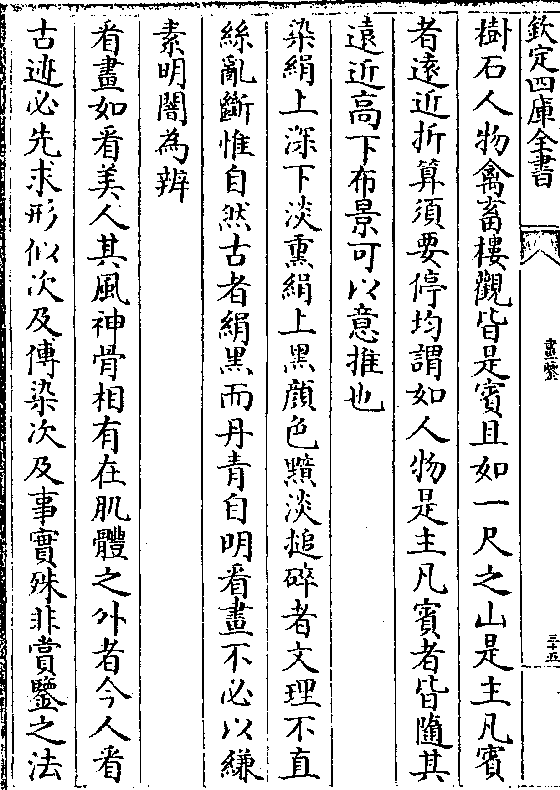 欽定四庫全書
畫繼
三十五
樹石人物禽畜樓觀皆是賓且如一尺之山是主凡賓
者逺近折算須要停均謂如人物是主凡賓者皆隨其
逺近高下布景可以意推也
染絹上深下淡熏絹上黑顔色黯淡搥碎者文理不直
絲亂斷惟自然古者絹黑而丹青自明看畫不必以縑
素明闇為辨
看畫如看美人其風神骨相有在肌體之外者今人看
古迹必先求形似次及傅染次及事實殊非賞鑒之法